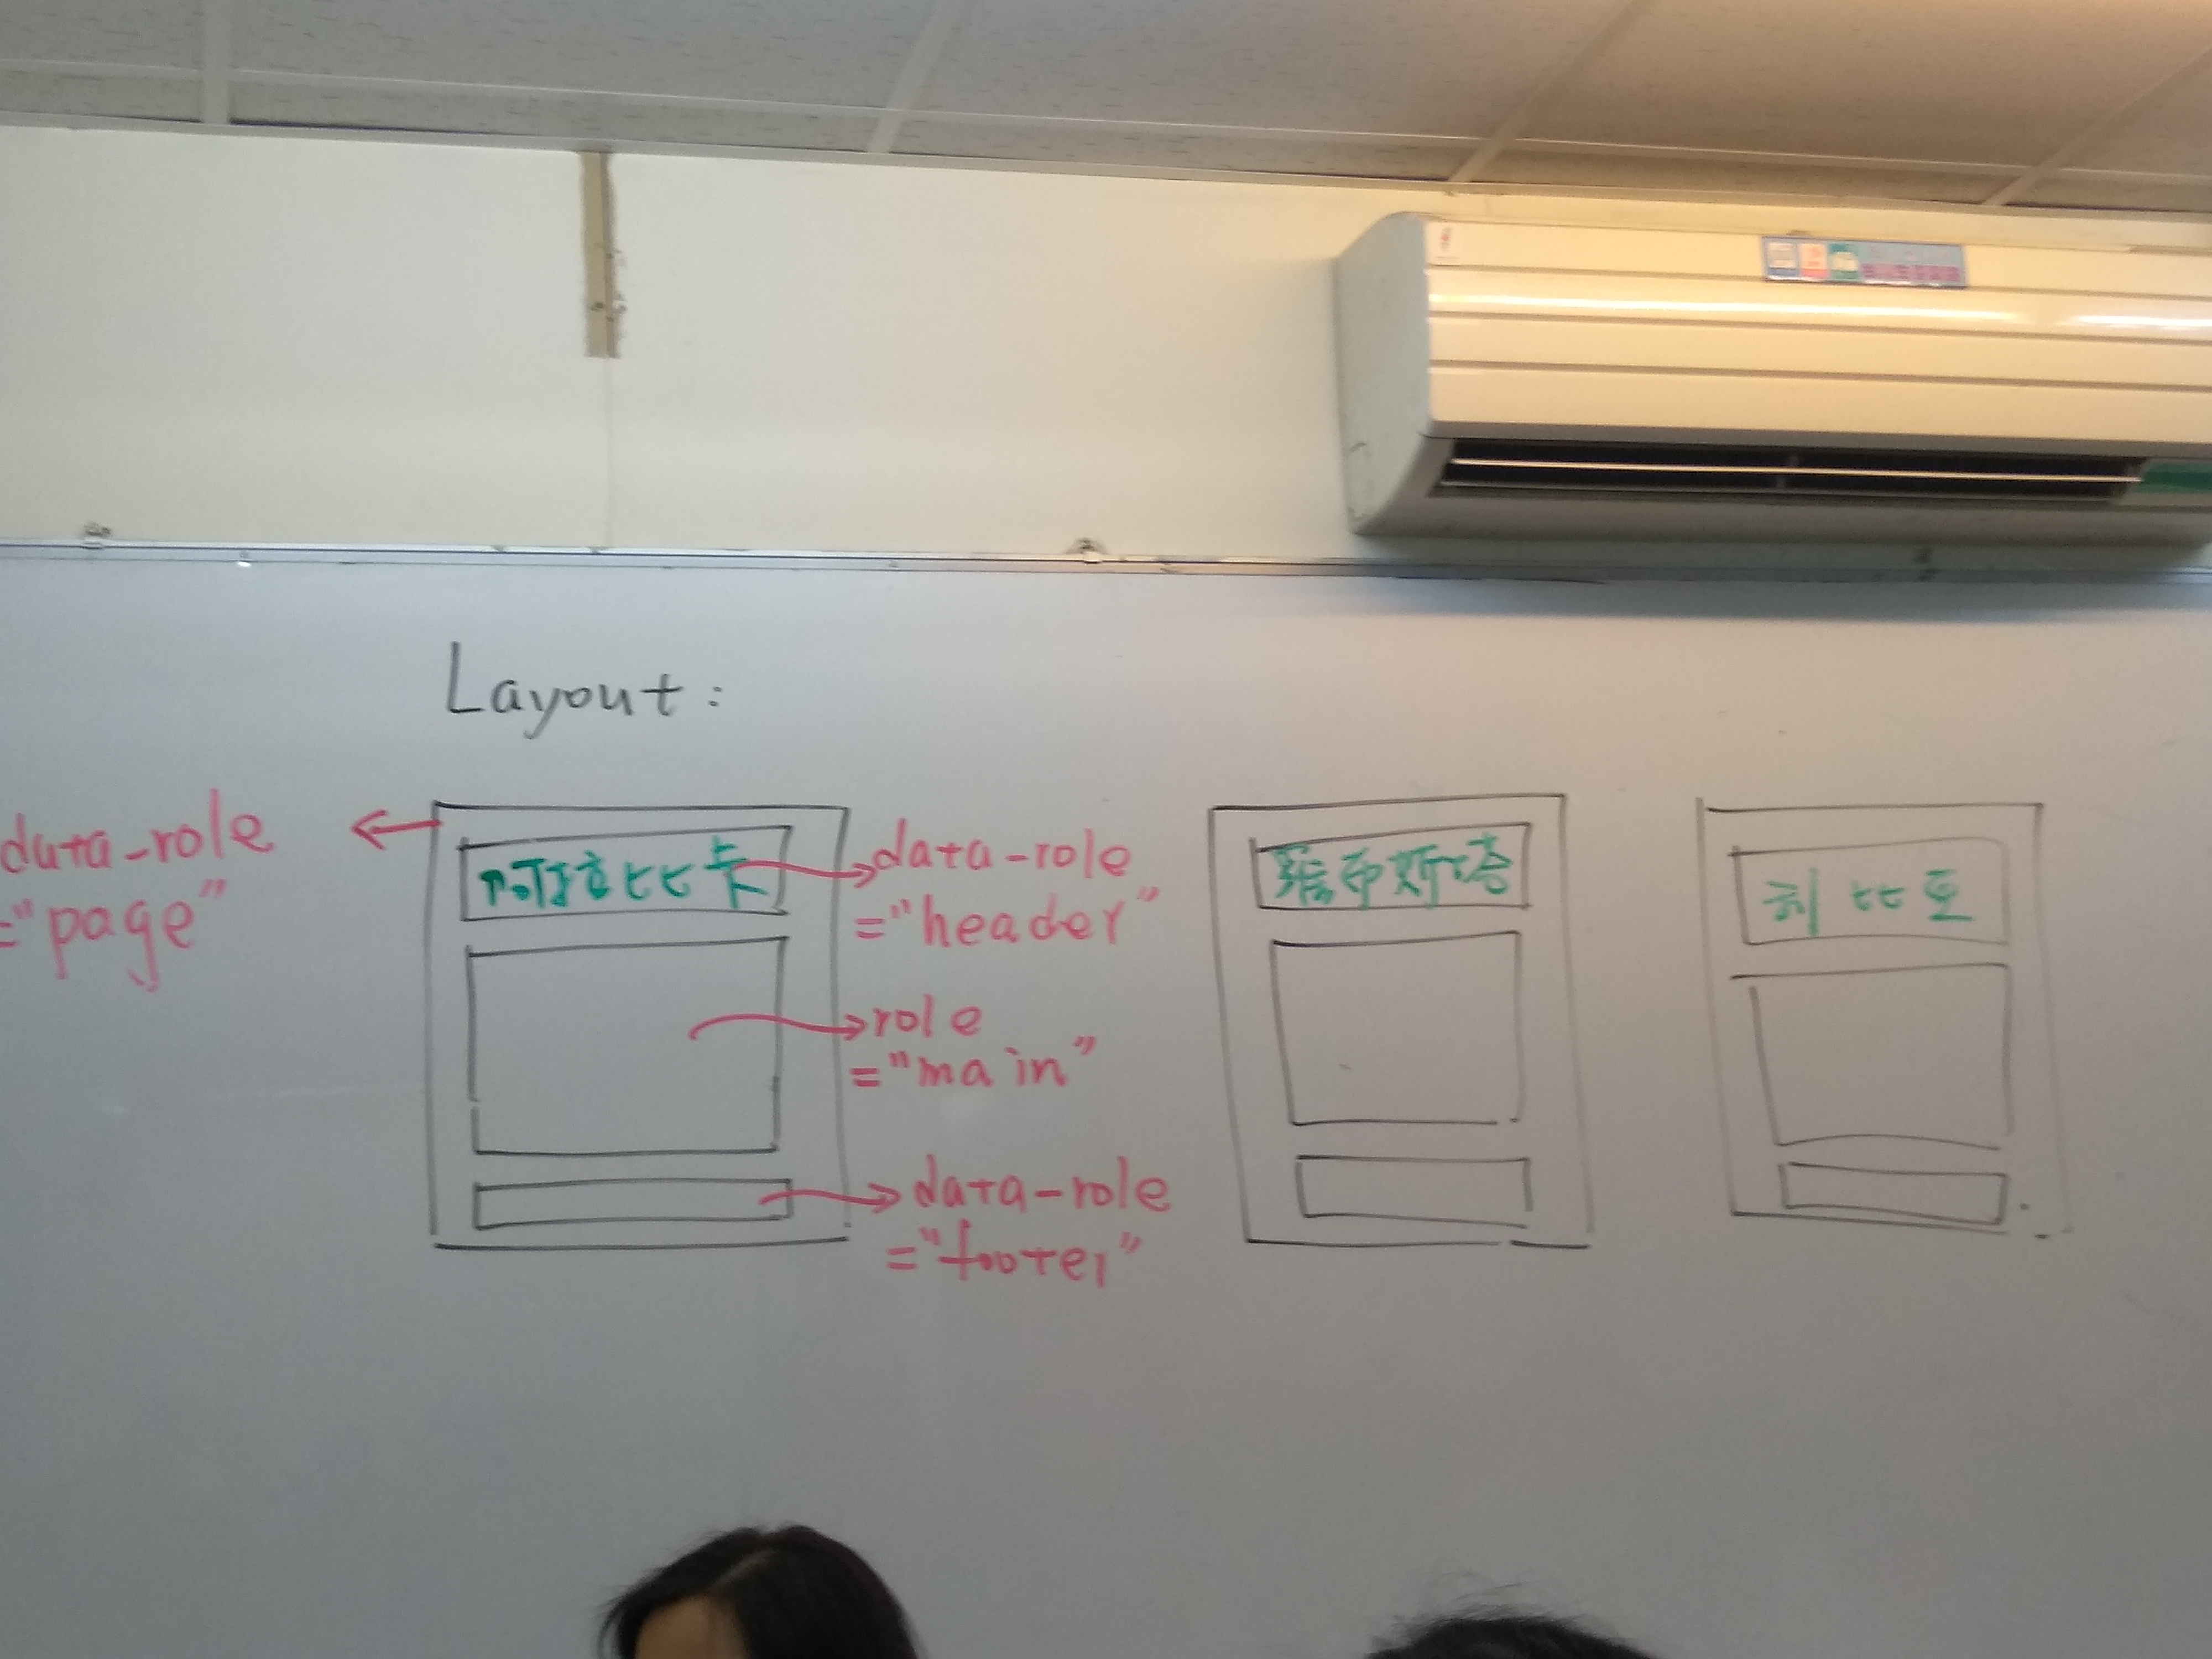 Layout:
data-role
="page"
阿拉比卡
data-role
="header"
role
="main"
data-role
="footer"
羅布斯塔
利比亞